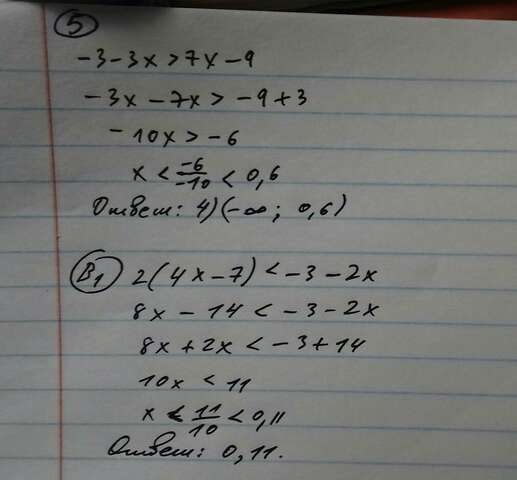 5
-3-3x>7x-9
-3x-7x>-9+3
-10x>-6
x<\frac{-6}{-10}<0,6
Ответ: 4)(-∞; 0,6)
В1 2(4x-7)<-3-2x
8x-14<-3-2x
8x+2x<-3+14
10x<11
x<\frac{11}{10}<0,11
Ответ: 0,11.